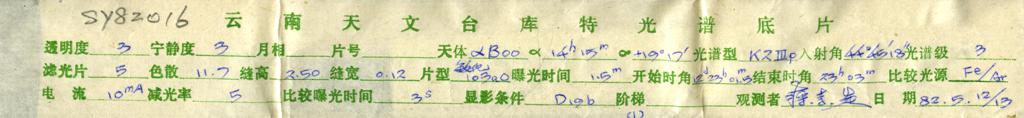 SY82016
云南天文台库特光谱底片
透明度 3 宁静度 3 月相 片号 天体 αBoo α 14ʰ 15ᵐ +19°17' 光谱型 K2IIIp 入射角 光谱级 3
滤光片 5 色散 11.7 缝高 2.50 缝宽 0.12 片型 103aO 曝光时间 1.5ᵐ 开始时角 结束时角 23ʰ03ᵐ 比较光源 Fe/Ar
电流 10mA 减光率 5 比较曝光时间 3ˢ 显影条件 D19b 阶梯 观测者 日期 82.5.12/13
(1)